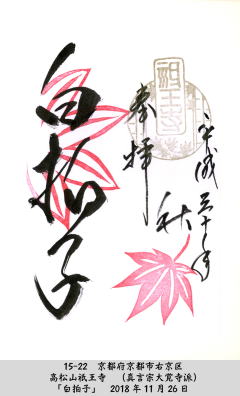 平成三十年
秋
奉拝
祇王寺
白拍子
15-22 京都府京都市右京区
高松山祇王寺 (真言宗大覚寺派)
「白拍子」 2018年11月26日